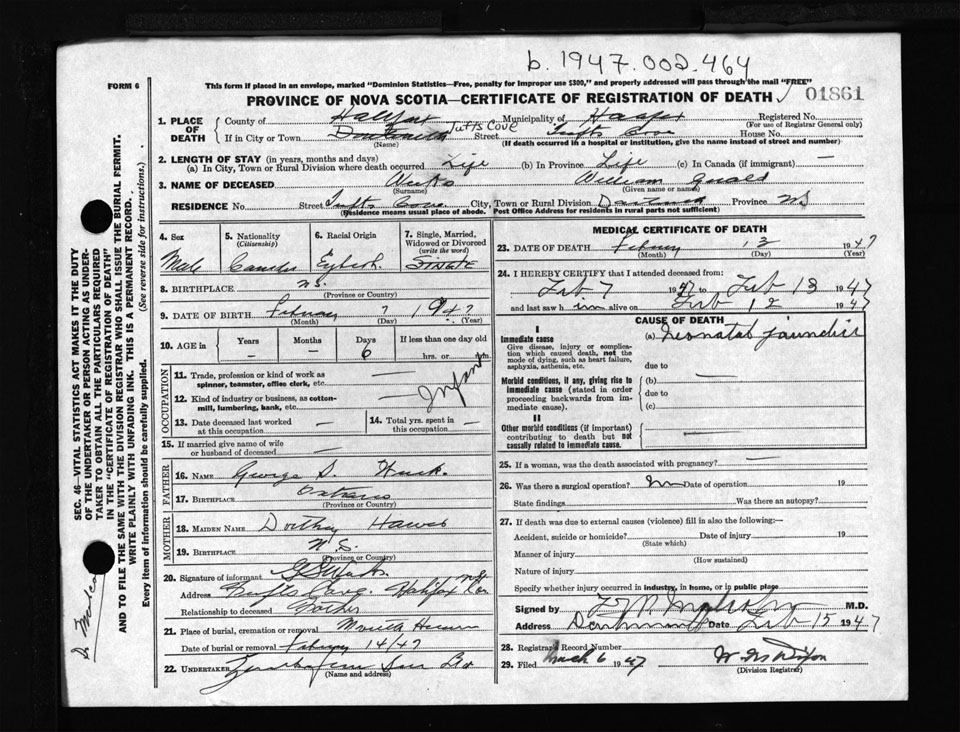 b. 1947.002.464
FORM 6
This form if placed in an envelope, marked "Dominion Statistics—Free, penalty for improper use $300," and properly addressed will pass through the mail "FREE"
PROVINCE OF NOVA SCOTIA—CERTIFICATE OF REGISTRATION OF DEATH
01861
1. PLACE OF DEATH
County of Halifax Municipality of Registered No.
(For use of Registrar General only)
If in City or Town Tufts Cove Street Tufts Cove House No.
(Name) (If death occurred in a hospital or institution, give the name instead of street and number)
2. LENGTH OF STAY (in years, months and days)
(a) In City, Town or Rural Division where death occurred Life (b) In Province Life (c) In Canada (if immigrant) —
3. NAME OF DECEASED William
(Surname) (Given name or names)
RESIDENCE No. Street Tufts Cove City, Town or Rural Division Province NS
(Residence means usual place of abode. Post Office Address for residents in rural parts not sufficient)
4. Sex
Male
5. Nationality
(Citizenship)
6. Racial Origin
7. Single, Married, Widowed or Divorced
(write the word)
SINGLE
8. BIRTHPLACE N.S.
(Province or Country)
9. DATE OF BIRTH February 7 1947
(Month) (Day) (Year)
10. AGE in
Years Months Days If less than one day old
— — 6 hrs. or min.
OCCUPATION
11. Trade, profession or kind of work as spinner, teamster, office clerk, etc. —
12. Kind of industry or business, as cotton-mill, lumbering, bank, etc. —
Infant
13. Date deceased last worked at this occupation —
14. Total yrs. spent in this occupation —
15. If married give name of wife or husband of deceased —
FATHER
16. NAME George S.
17. BIRTHPLACE Ontario
(Province or Country)
MOTHER
18. MAIDEN NAME
19. BIRTHPLACE N.S.
(Province or Country)
20. Signature of informant
Address Tufts Cove. Halifax
Relationship to deceased Father
21. Place of burial, cremation or removal
Date of burial or removal February 14/47
22. UNDERTAKER
(Name and address)
MEDICAL CERTIFICATE OF DEATH
23. DATE OF DEATH 13 1947
(Month) (Day) (Year)
24. I HEREBY CERTIFY that I attended deceased from:
Feb 7 1947 to Feb 13 1947
and last saw him alive on Feb 12 1947
CAUSE OF DEATH
I
Immediate cause
Give disease, injury or complication which caused death, not the mode of dying, such as heart failure, asphyxia, asthenia, etc.
(a) Neonatal jaundice
due to
Morbid conditions, if any, giving rise to immediate cause (stated in order proceeding backwards from immediate cause)
(b) —
due to
(c)
II
Other morbid conditions (if important) contributing to death but not causally related to immediate cause. —
25. If a woman, was the death associated with pregnancy? —
26. Was there a surgical operation? No Date of operation 19
State findings Was there an autopsy?
27. If death was due to external causes (violence) fill in also the following:—
Accident, suicide or homicide? Date of injury 19
(State which)
Manner of injury
(How sustained)
Nature of injury
Specify whether injury occurred in industry, in home, or in public place
Signed by M.D.
Address Dartmouth Date Feb 15 1947
28. Registrar's Record Number
29. Filed March 6 1947
(Division Registrar)
SEC. 46—VITAL STATISTICS ACT MAKES IT THE DUTY
OF THE UNDERTAKER OR PERSON ACTING AS UNDER-
TAKER TO OBTAIN ALL THE PARTICULARS REQUIRED
IN THE "CERTIFICATE OF REGISTRATION OF DEATH"
AND TO FILE THE SAME WITH THE DIVISION REGISTRAR WHO SHALL ISSUE THE BURIAL PERMIT.
WRITE PLAINLY WITH UNFADING INK. THIS IS A PERMANENT RECORD.
Every item of information should be carefully supplied. (See reverse side for instructions.)